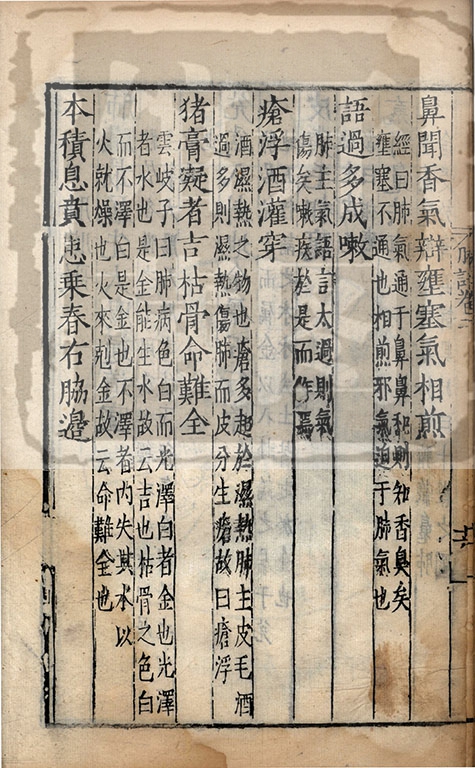 鼻聞香氣辯壅塞氣相煎
經曰肺氣通于鼻鼻和則知香臭矣
壅塞不通也相煎邪氣迫于肺氣也
語過多成嗽
肺主氣語言太過則氣
傷矣嗽疾於是而作焉
瘡浮酒灌穿
酒濕熱之物也瘡多起於濕熱肺主皮毛酒
過多則濕熱傷肺而皮分生瘡故曰瘡浮
猪膏凝者吉枯骨命難全
雲岐子曰肺病色白而光澤白者金也光澤
者水也是金能生水故云吉也枯骨之色白
而不澤白是金也不澤者内失其水以
火就燥也火來剋金故云命難全也
本積息賁患乘春右脇邊